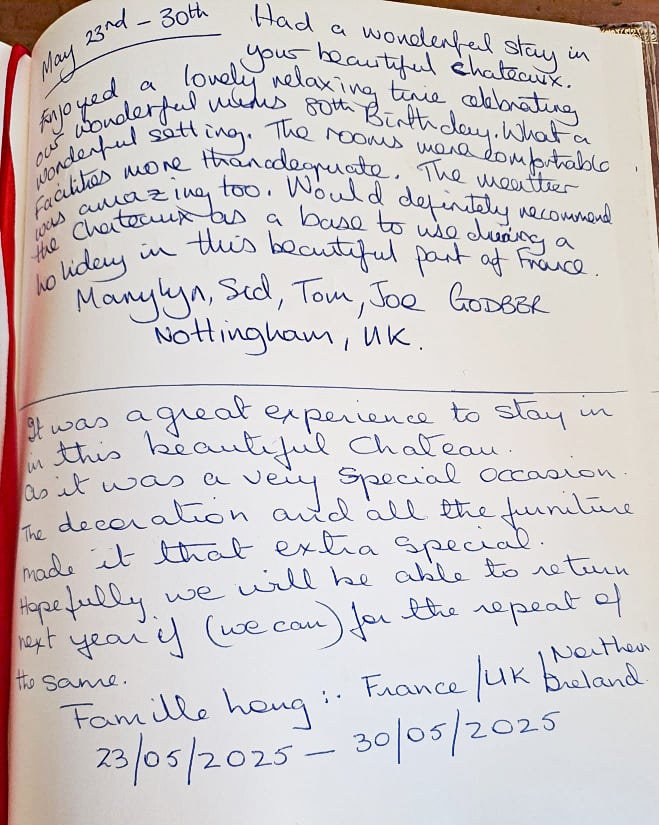 May 23rd - 30th
Had a wonderful stay in
your beautiful Chateaux.
Enjoyed a lovely relaxing time celebrating
our wonderful mums 80th Birthday. What a
wonderful setting. The rooms were comfortable
Facilities more than adequate. The weather
was amazing too. Would definitely recommend
the Chateaux as a base to use during a
holiday in this beautiful part of France.
Marylyn, Sid, Tom, Joe GODBER
Nottingham, UK.
It was a great experience to stay in
in this beautiful Chateau.
as it was a very special occasion.
The decoration and all the furniture
made it that extra special.
Hopefully we will be able to return
next year if (we can) for the repeat of
the same.
Famille :. France/UK/Northern
Ireland
23/05/2025 - 30/05/2025